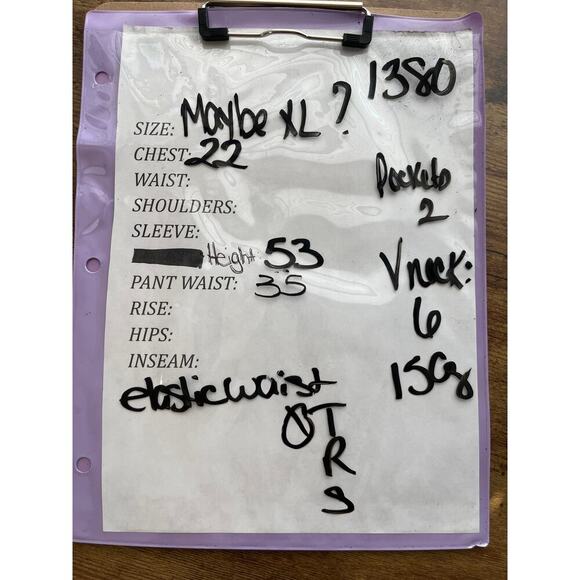 1380
SIZE: Maybe XL ?
CHEST: 22
WAIST:
Pockets
2
SHOULDERS:
SLEEVE:
Height: 53
PANT WAIST: 35
V neck:
6
RISE:
HIPS:
INSEAM:
150g
elastic waist
OTRS